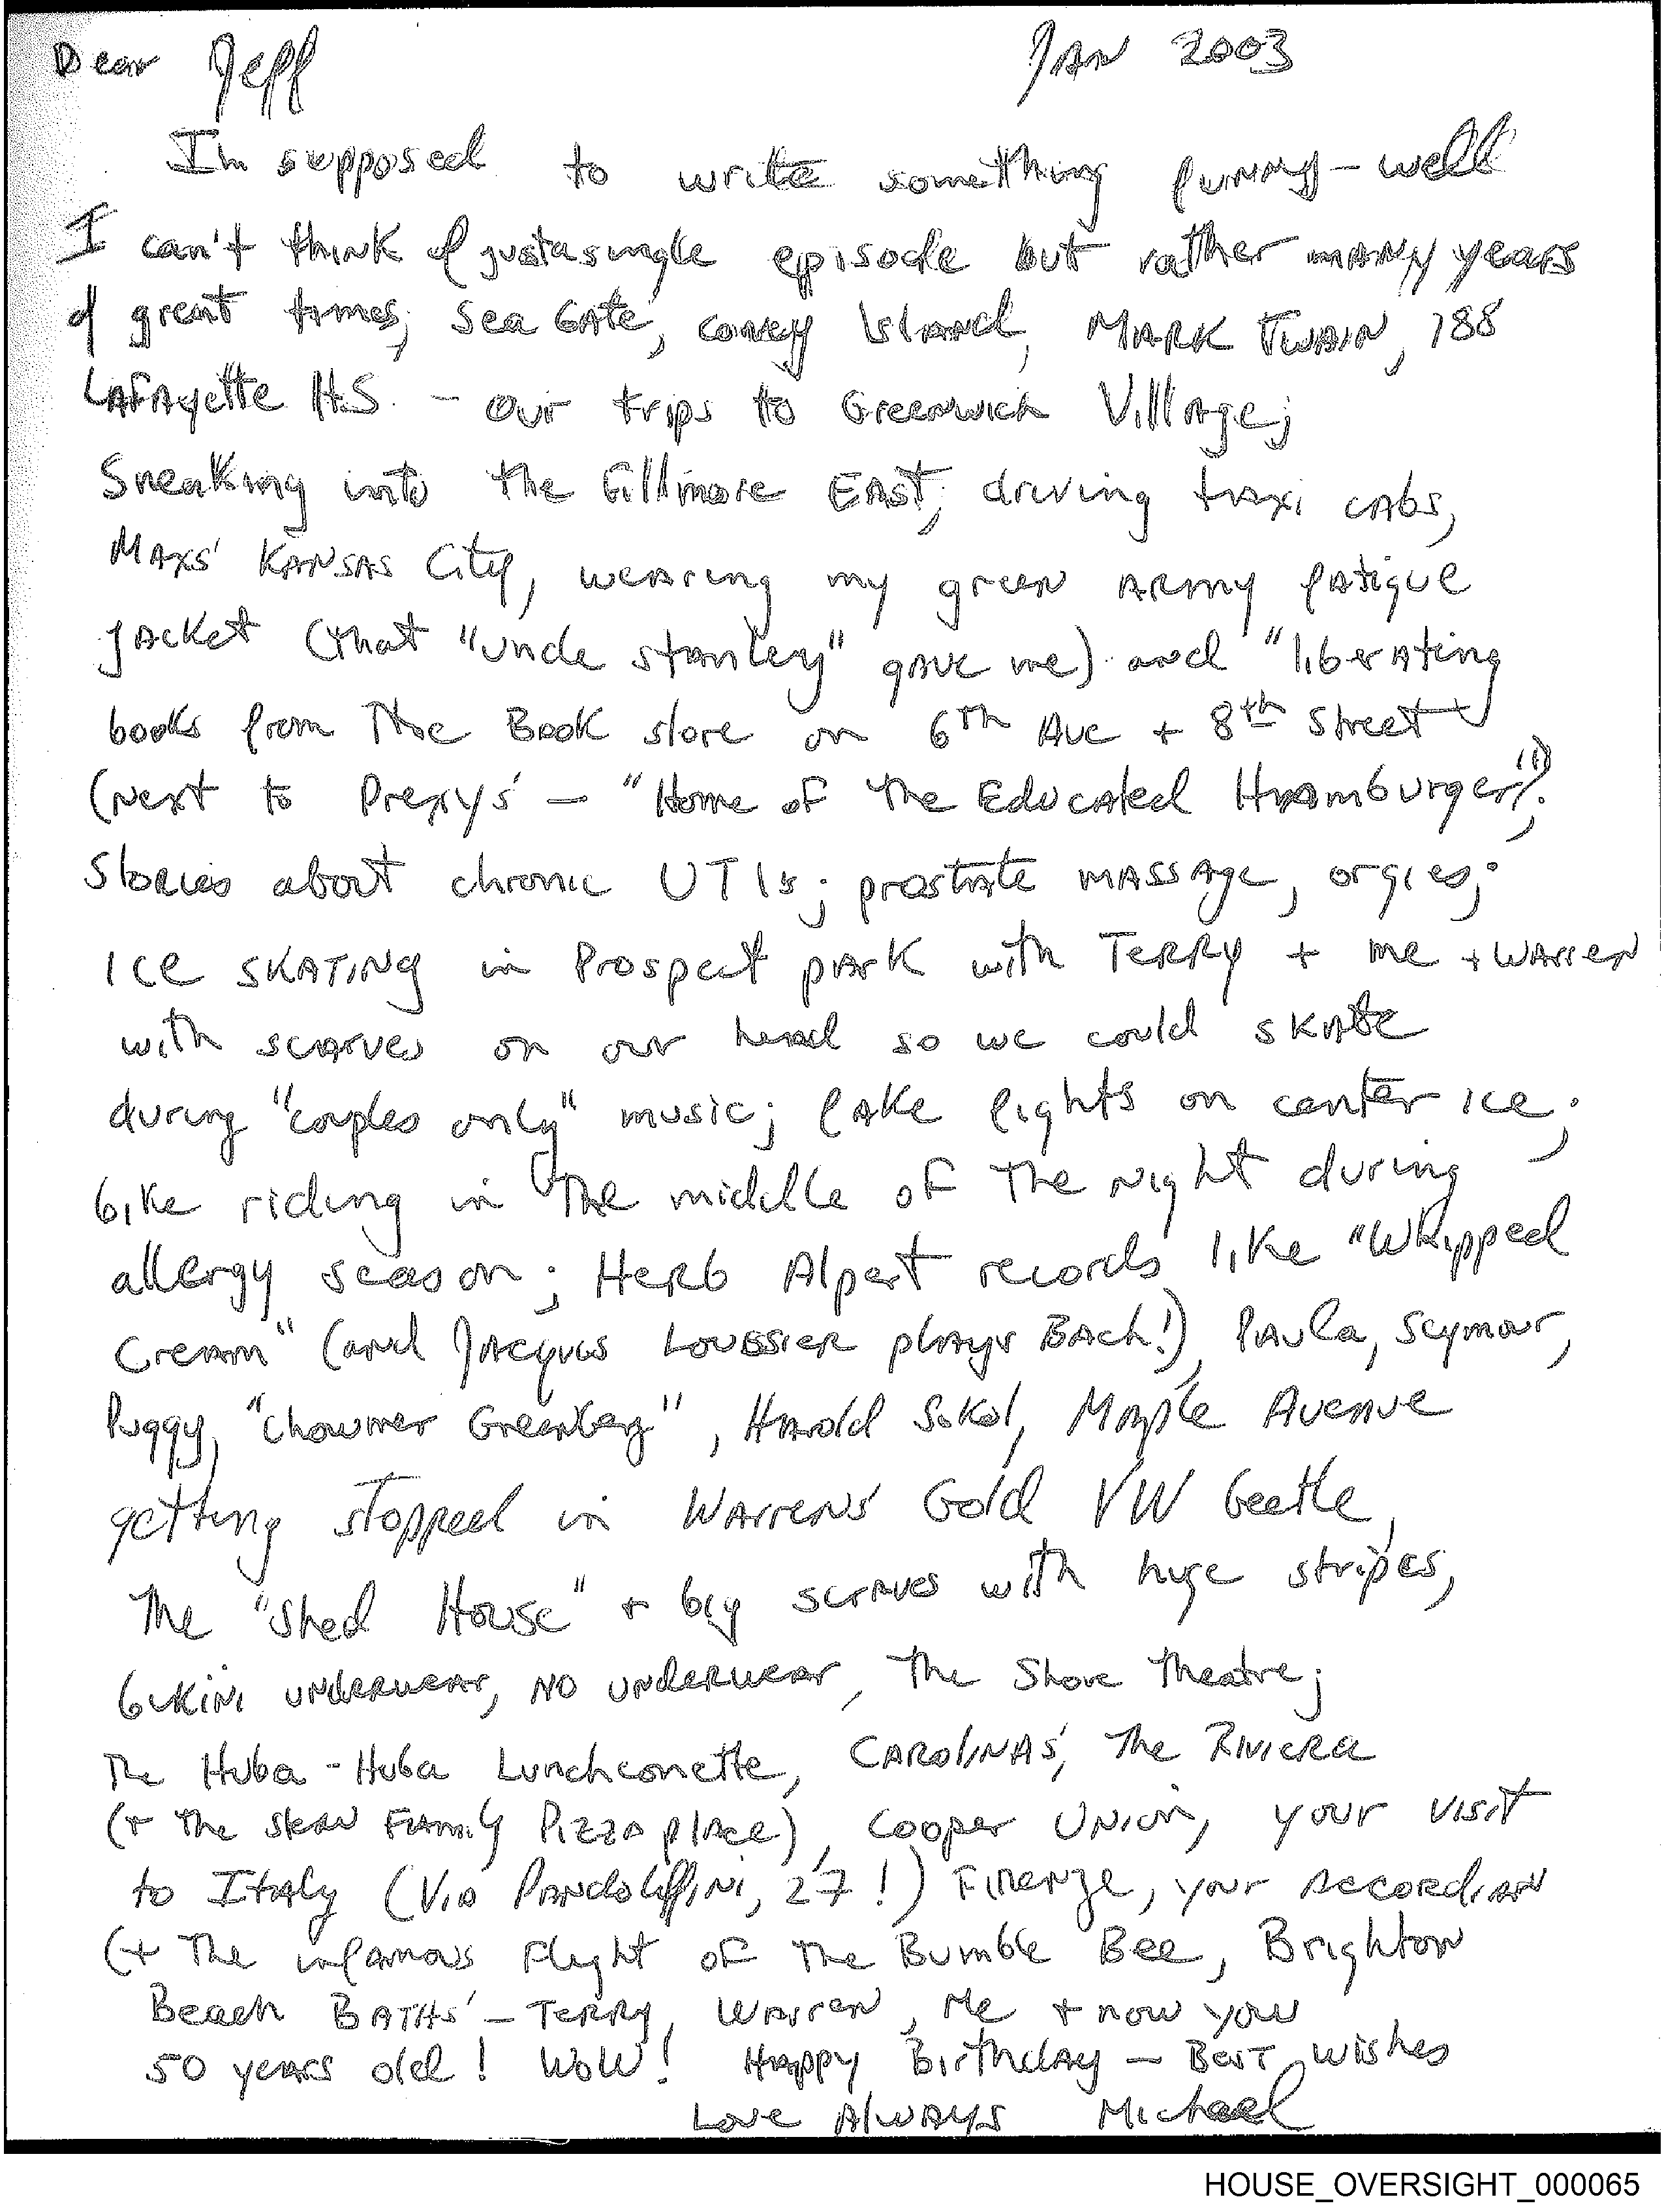 Dear Jeff JAN 2003
I'm supposed to write something funny - well
I can't think of just a single episode but rather many years
of great times; Sea Gate, Coney Island, MARK TWAIN, 188
Lafayette H.S. - our trips to Greenwich Village;
Sneaking into the Fillmore East; driving taxi cabs,
Maxs' Kansas City, wearing my green army fatigue
jacket (that "uncle stanley" gave me) and "liberating
books from The Book store on 6th Ave + 8th Street
(next to Prexys' - "Home of the Educated Hamburger"!);
Stories about chronic UTIs; prostate massage, orgies;
ICE SKATING in Prospect park with TERRY + me + WARREN
with scarves on our head so we could skate
during "couples only" music; fake fights on center ice;
bike riding in the middle of the night during
allergy season; Herb Alpert records like "Whipped
Cream" (and Jacques Loussier plays Bach!), Paula, Seymour,
Puggy, "Chowmer Greenberg", Harold Sokol, Maple Avenue
getting stopped in Warrens' Gold VW beetle,
The "Shed House" + big scarves with huge stripes,
bikini underwear, no underwear, The Shore Theatre;
The Huba-Huba Luncheonette, CAROLINAS', The Riviera
(+ The Family Pizza place), Cooper Union, your visit
to Italy (Via Pandolfini, 27!) Firenze, your accordian
(+ The infamous Flight of The Bumble Bee, Brighton
Beach BATHS' - TERRY, Warren, Me + now you
50 years old! WOW! Happy Birthday - Best wishes
Love Always Michael
HOUSE_OVERSIGHT_000065